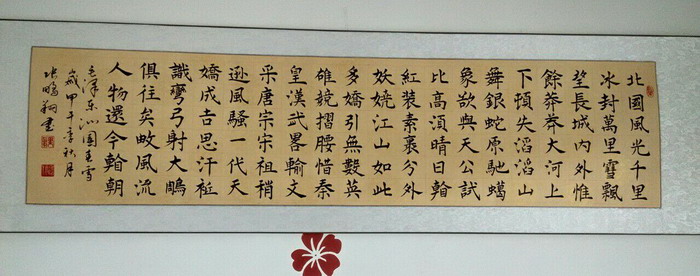 北國風光千里
冰封萬里雪飄
望長城內外惟
餘莽莽大河上
下頓失滔滔山
舞銀蛇原馳蠟
象欲與天公試
比高湏晴日看
紅裝素裹兮外
妖嬈江山如此
多嬌引無數英
雄競摺腰惜秦
皇漢武畧輸文
采唐宗宋祖稍
遜風騷一代天
嬌成吉思汗祗
識彎弓射大鵰
俱往矣數風流
人物還今看朝
毛澤东沁園春雪
歲甲午季秋月
张鵬翔書